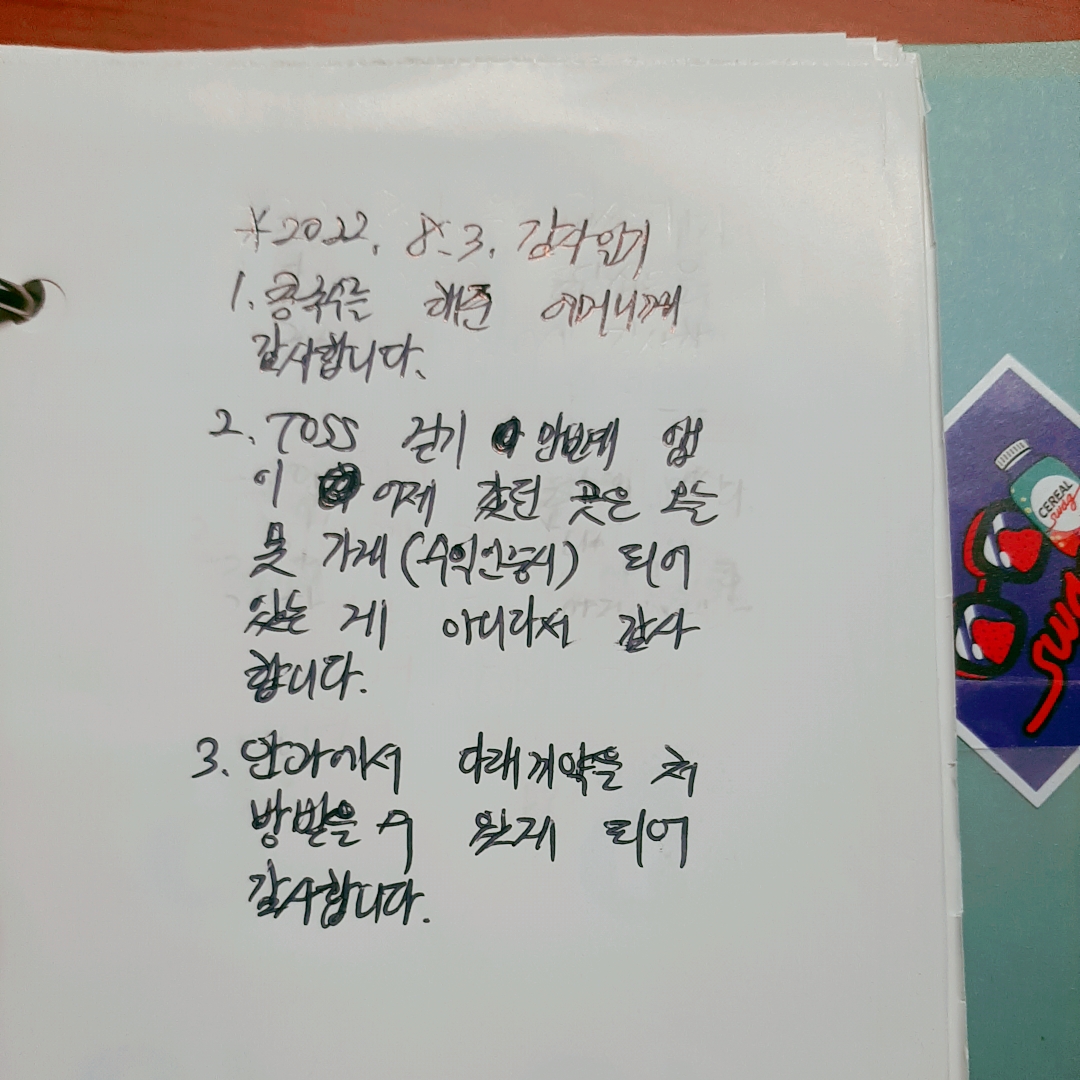 *2022. 8. 3. 감사일기
1. 콩국수를 해준 어머니께
감사합니다.
2. TOSS 걷기 만보계 앱
이 어제 갔던 곳은 오늘
못 가게 ( ) 되어
있는 게 아니라서 감사
합니다.
3. 안과에서 다래끼약을 처
방받을 수 있게 되어
감사합니다.
CEREAL
swag
swag